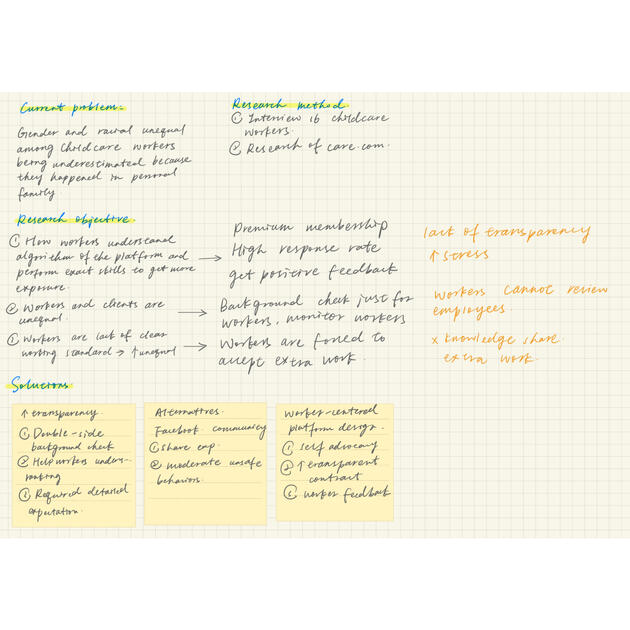 Current problem:
Gender and racial unequal
among childcare workers
being underestimated because
they happened in personal
family
Research method
① Interview 16 childcare
workers.
② Research of care.com.
Research objective
① How workers understand
algorithm of the platform and
perform exact skills to get more
exposure.
→ Premium membership
High response rate
get positive feedback
lack of transparency
↑ stress
② Workers and clients are
unequal.
→ Background check just for
workers, monitor workers
Workers cannot review
employees.
③ Workers are lack of clear
working standard → ↑ unequal
→ Workers are forced to
accept extra work.
× knowledge share
extra work.
Solutions
↑ transparency.
① Double-side
background check
② Help workers unders-
ranking
③ Required detailed
expectation.
Alternatives.
Facebook community
① share exp.
② moderate unsafe
behaviors.
Worker-centered
platform design.
① self advocacy
② ↑ transparent
contract
③ worker feedback